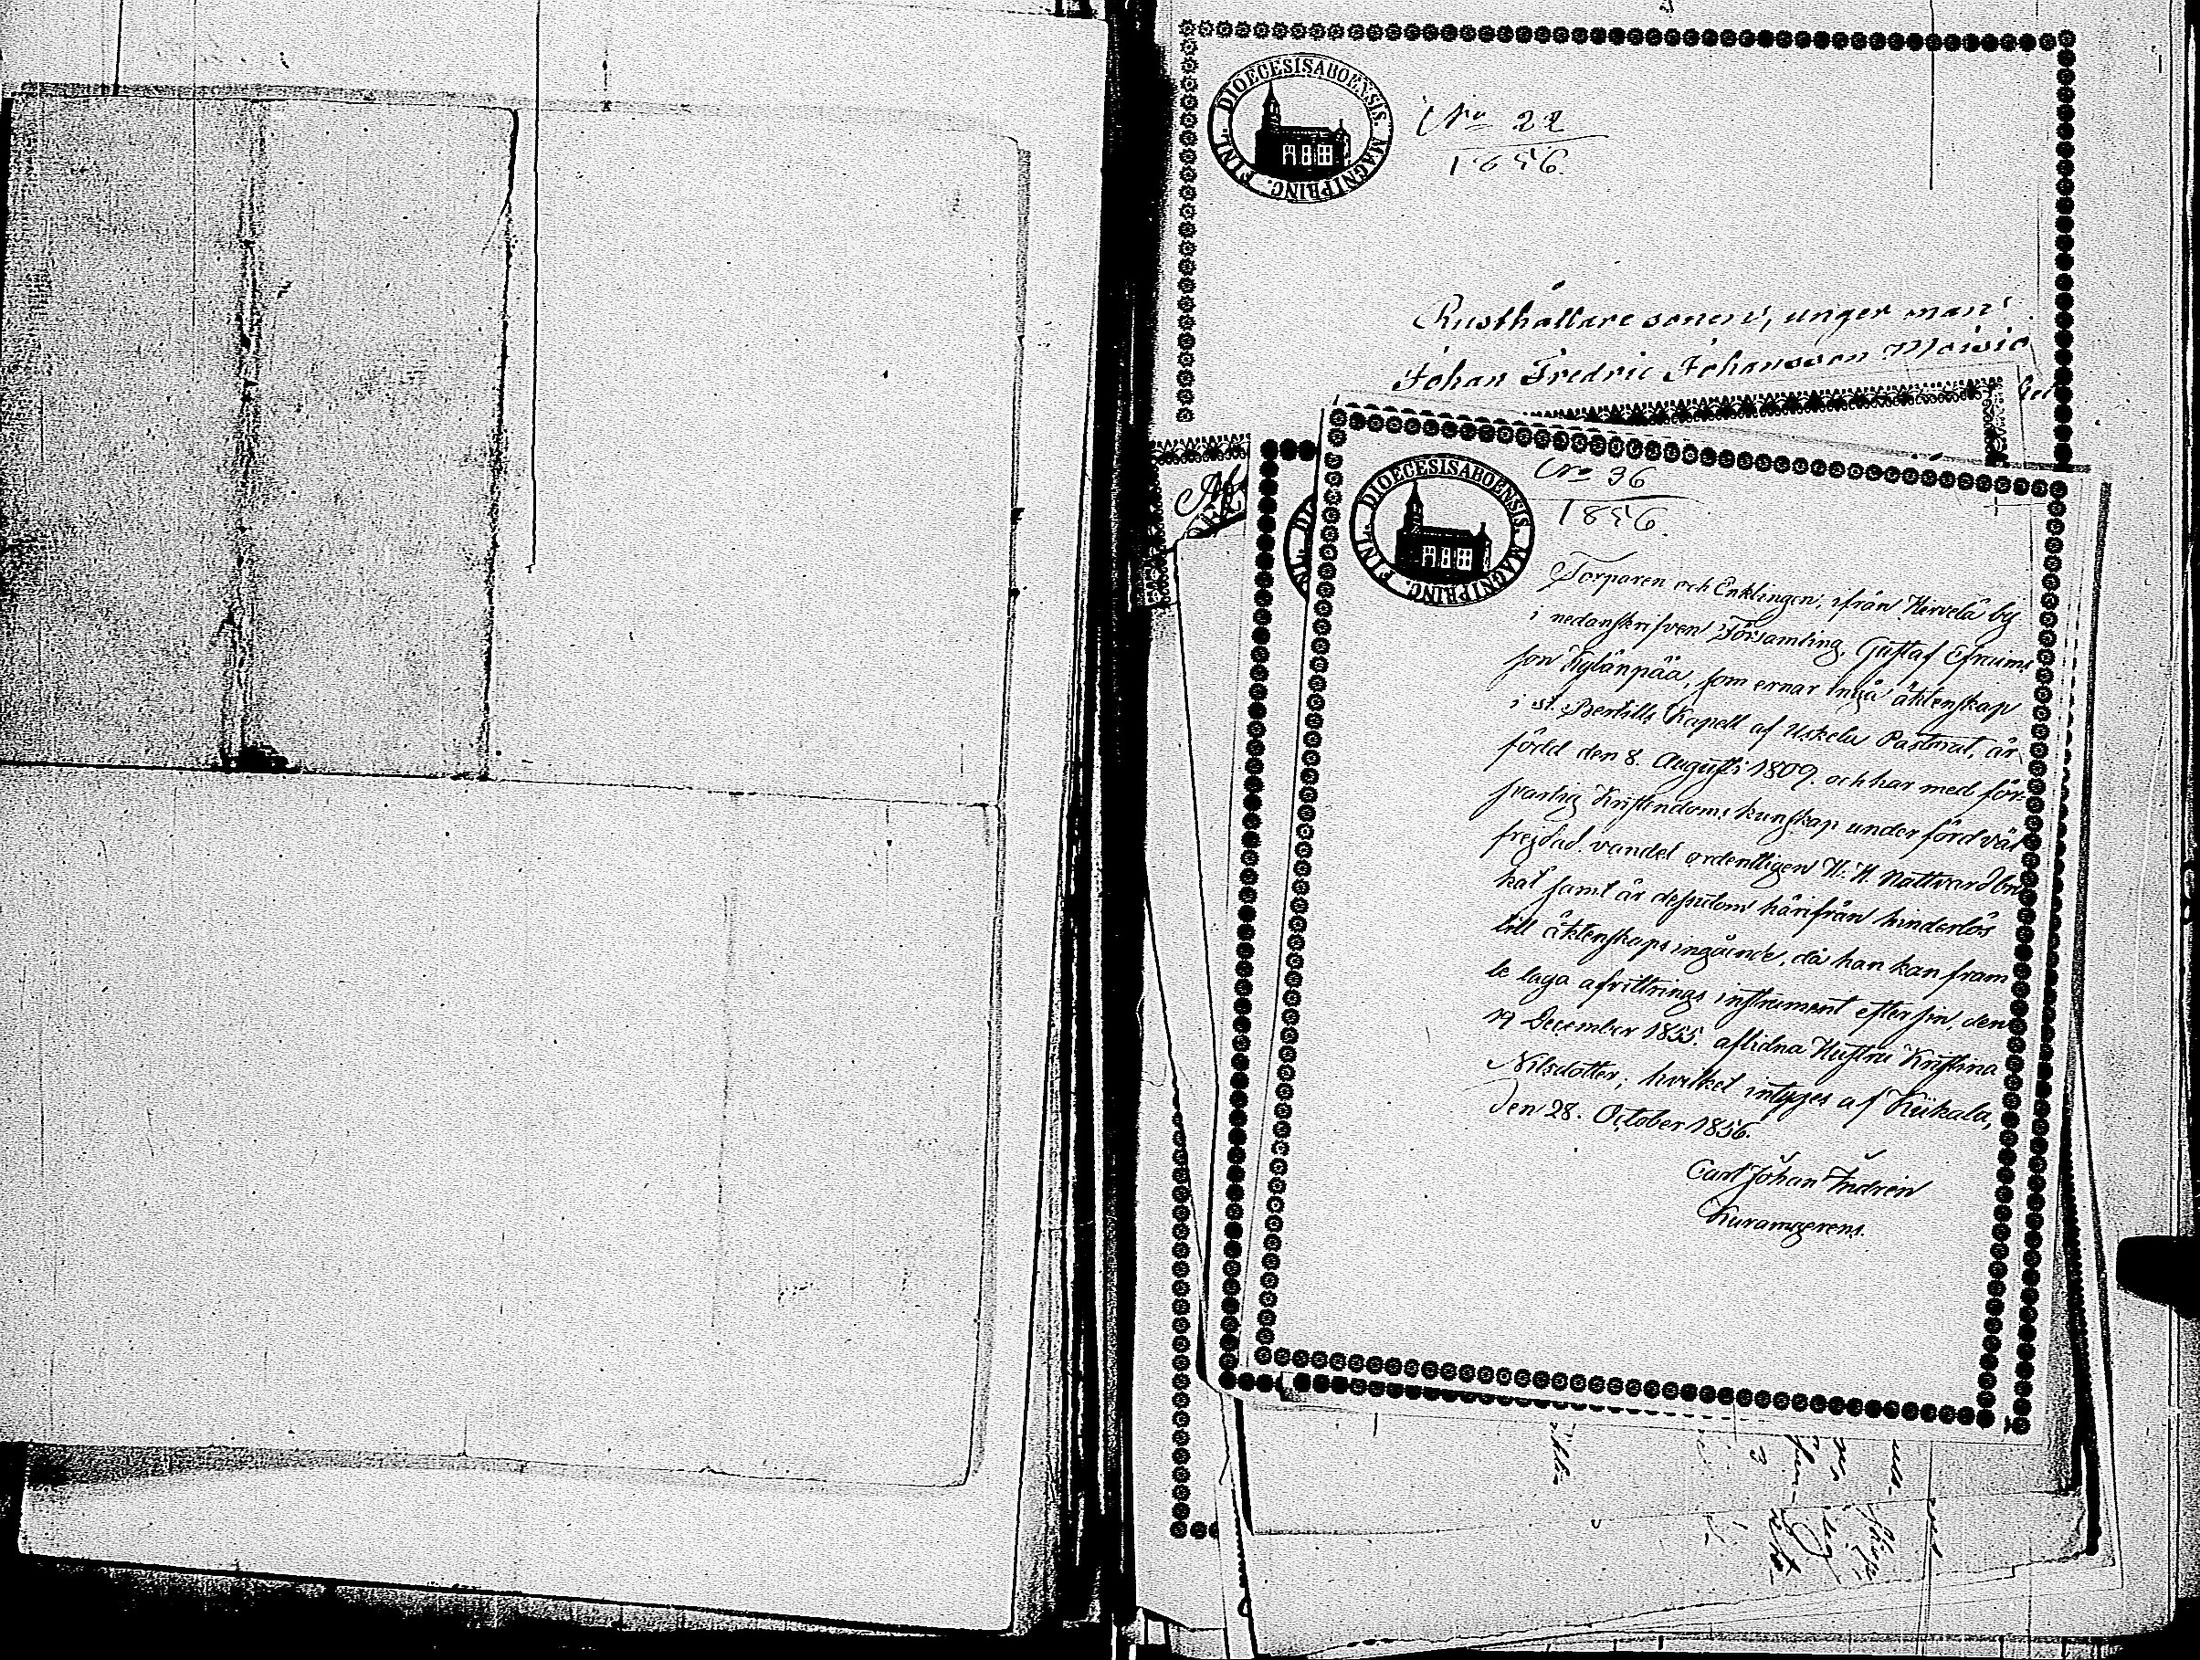 DIOECESIS ABOENSIS. MAGNI PRINC. FINL.
No 22
1856.
Rusthållare sonen, unger man
Johan Fredric Johansson Moisio
DIOECESIS ABOENSIS. MAGNI PRINC. FINL.
No 36
1856.
Torparen och Enklingen, ifrån Hirvelä by
i nedanskrifven Församling, Gustaf Efraims
son Kylänpää, som ernar ingå äktenskap
i St. Bertills Kapell af Uskela Pastorat, är
född den 8. Augusti 1809. och har med för-
svarlig Kristendoms kunskap under förd väl
frejdad vandel ordentligen H. H. Nattvard bru
kat samt är dessutom härifrån hinderlös
till äktenskaps ingående, då han kan fram
te laga afvittrings instrument efter sin, den
19 December 1855. aflidna Hustru Kristina
Nilsdotter; hvilket intyges af Kiikala,
den 28. October 1856.
Carl Johan Indrén
Kuramgerens.